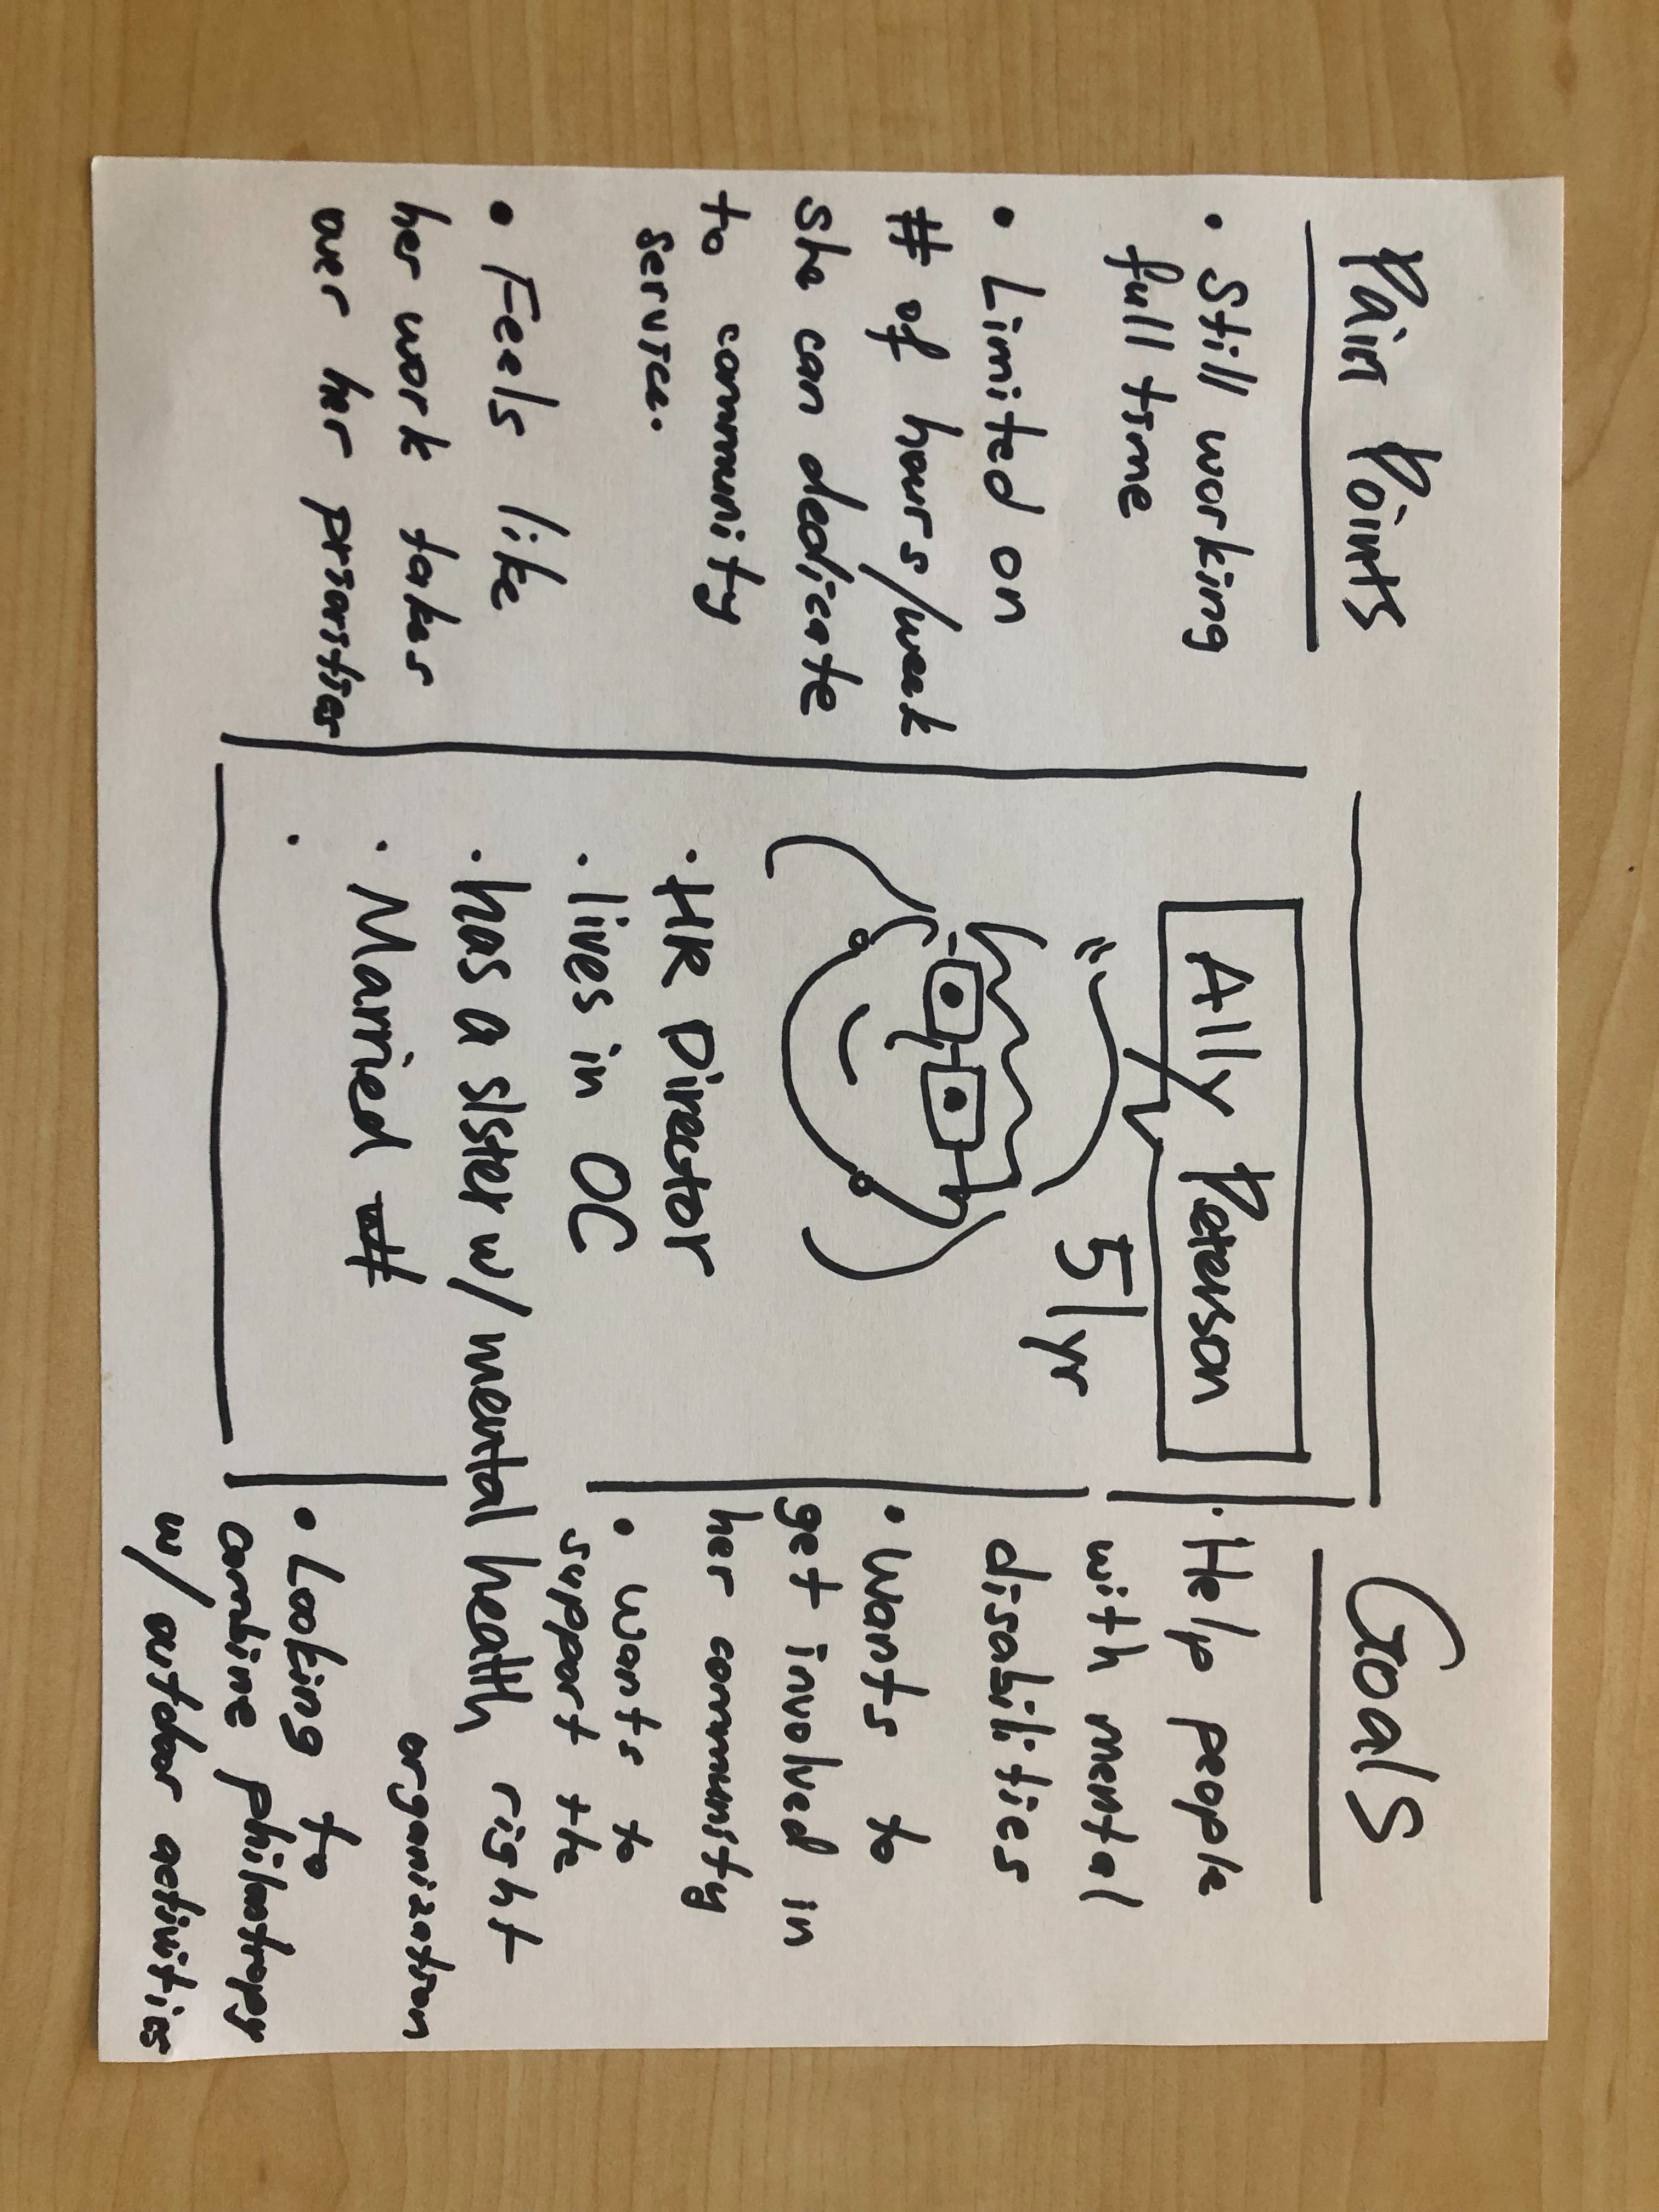 Pain Points
• Still working
full time
• Limited on
# of hours/week
she can dedicate
to community
service.
• Feels like
her work takes
over her priorities
Ally Peterson
51yr
• HR Director
• lives in OC
• has a sister w/ mental health
• Married
•
Goals
• Help people
with mental
disabilities
• Wants to
get involved in
her community
• Wants to
support the
right
organization
• Looking to
combine philastropy
w/ outdoor activities